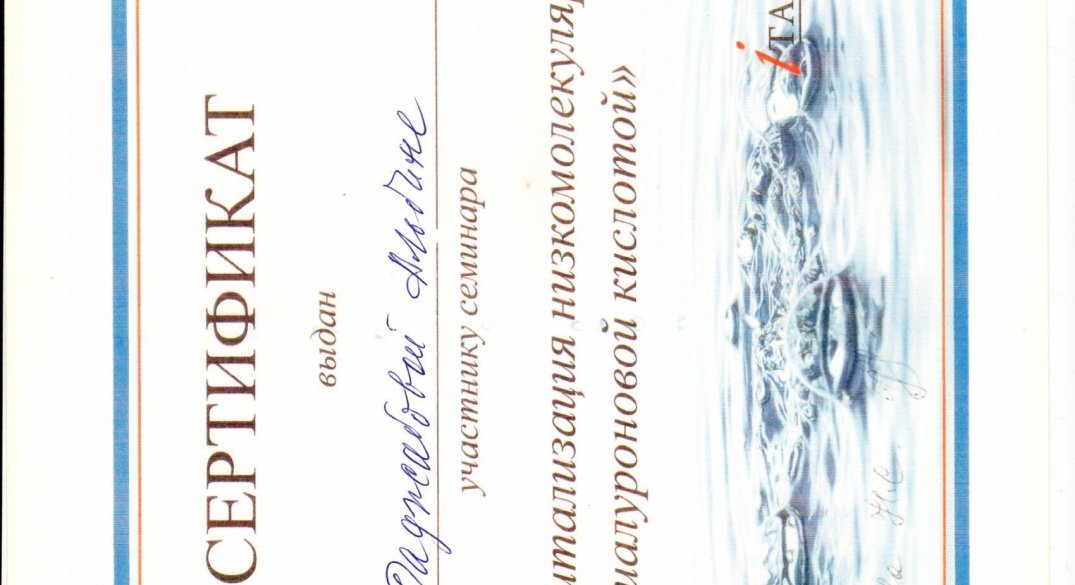 СЕРТИФИКАТ
выдан
Раджабовой Альбине
участнику семинара
итализация низкомолекуляр
иалуроновой кислотой»
i ТА